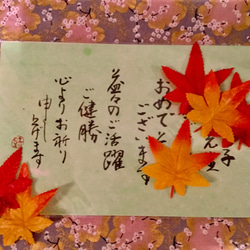 おめでと
ございます
益々のご活躍
ご健勝
心よりお祈り
申し上げます